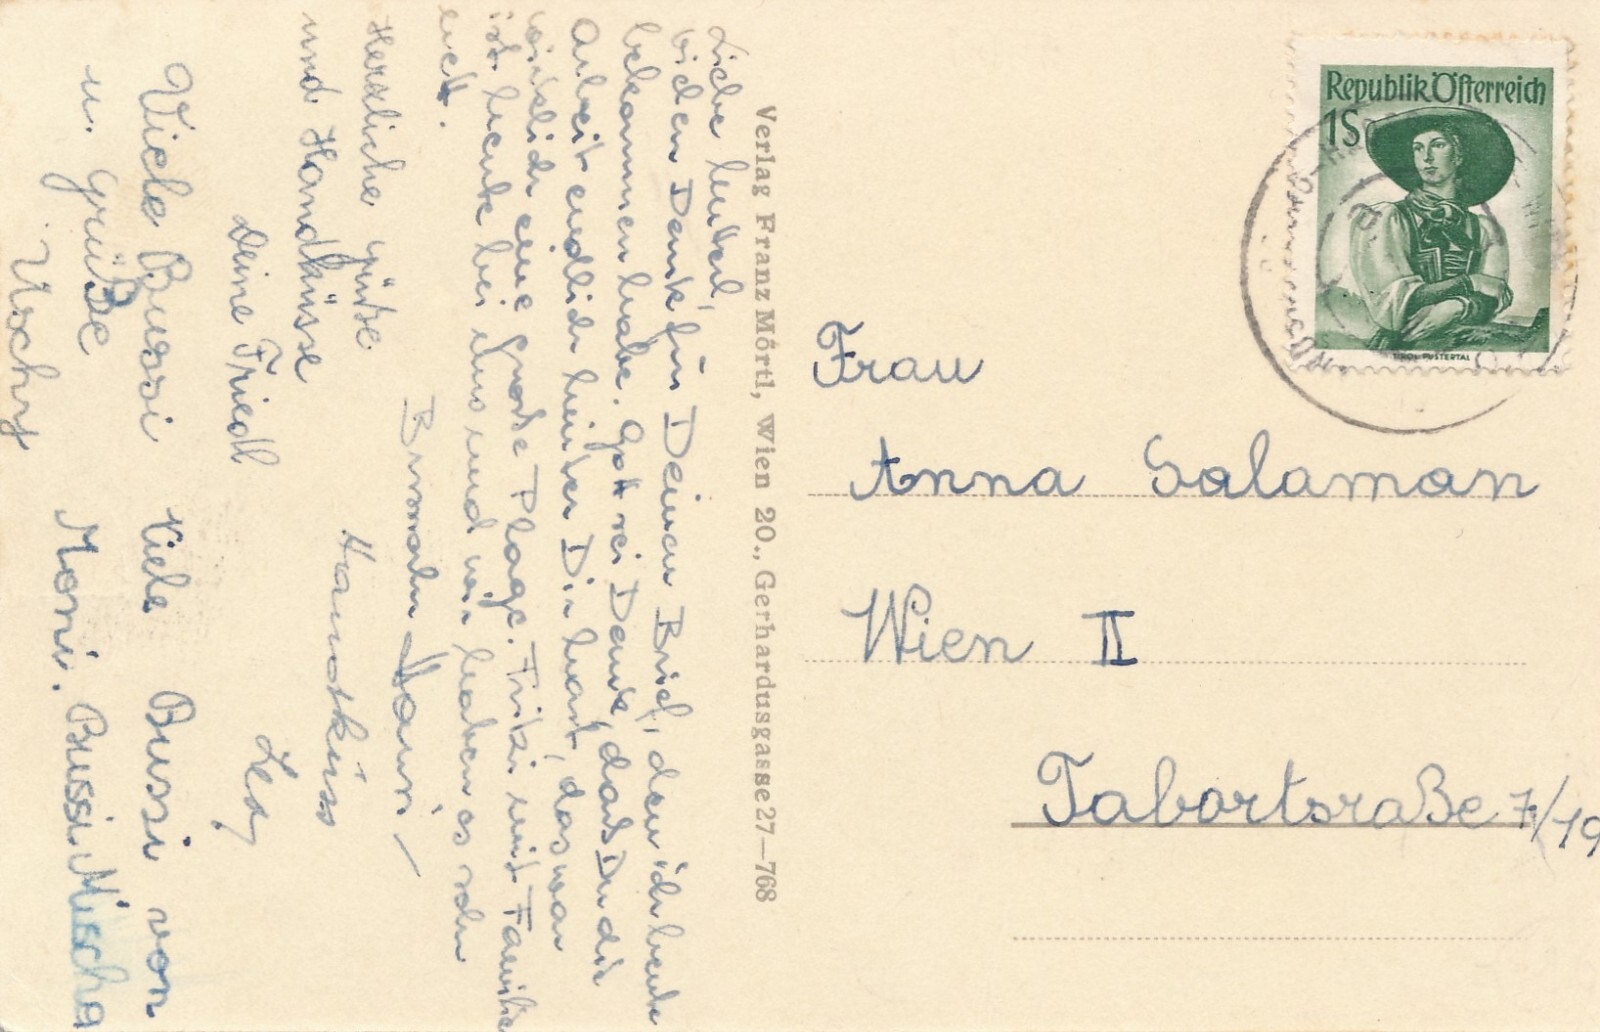 Liebe
vielen Dank für Deinen Brief, den ich heute
bekommen habe. Gott sei Dank, daß Du die
Arbeit endlich hinter Dir hast, das war
wirklich eine große Plage. Fritzi mit Familie
ist heute bei uns und wir haben es sehr
nett.
Bussi
Herzliche Grüße
und Handküsse
Deine Friedl
Handkuss
Viele Bussi
u. Grüße
Uschy
Viele Bussi von
Moni. Bussi. Mischa
Verlag Franz Mörtl, Wien 20., Gerhardusgasse 27—768
Republik Österreich
1S
TIROL, PUSTERTAL
Frau
Anna Salaman
Wien II
Tabortsraße 7/19